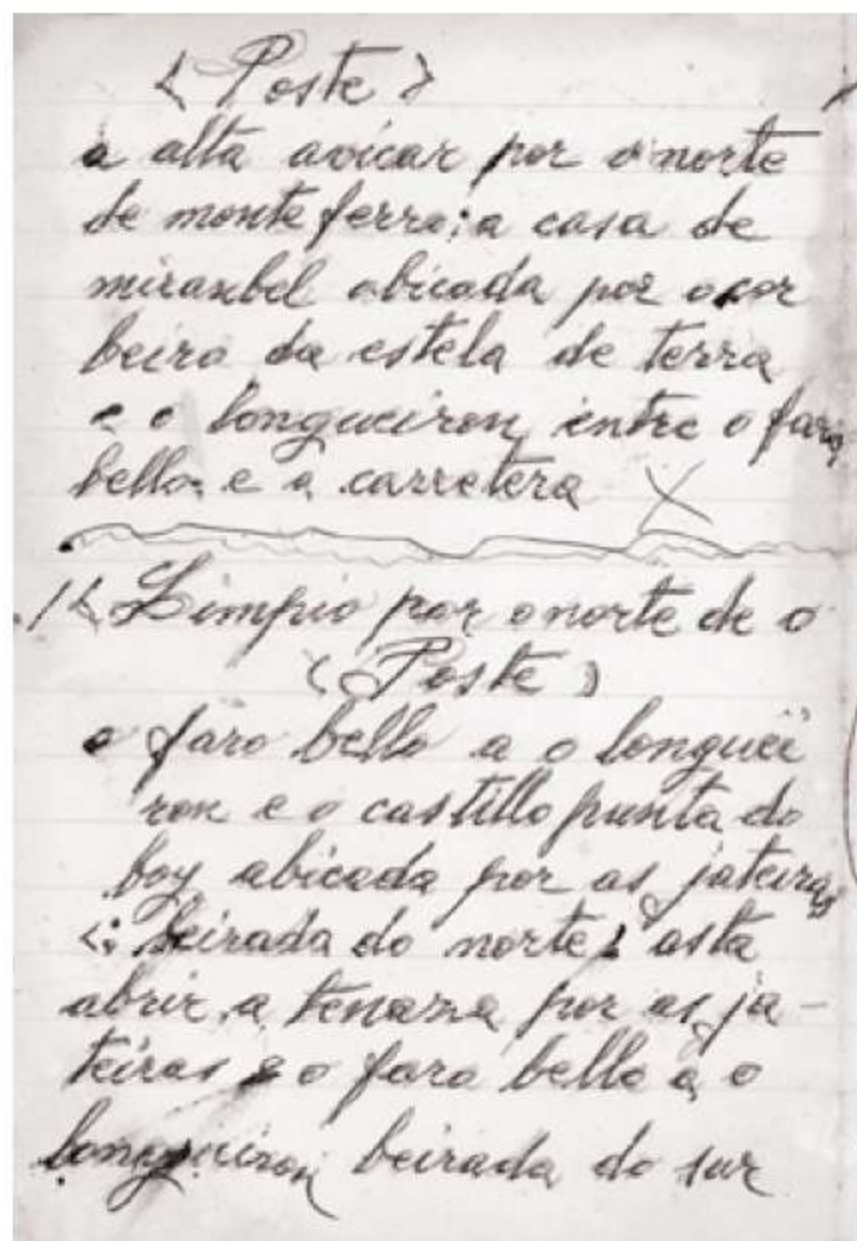 < Poste >
a alta avicar por o norte
de monte ferro; a casa de
miraxbel abicada por o cor
beiro da estela de terra
e o longueiron, entre o faro
bello e a carretera X
1 < Limpio por o norte de o
( Poste )
o faro bello a o longuei
ron e o castillo punta do
boy abicada por as jateiras
<; beirada do norte; asta
abrir, a tenaza por as ja-
teiras e o faro bello a o
longueiron beirada do sur